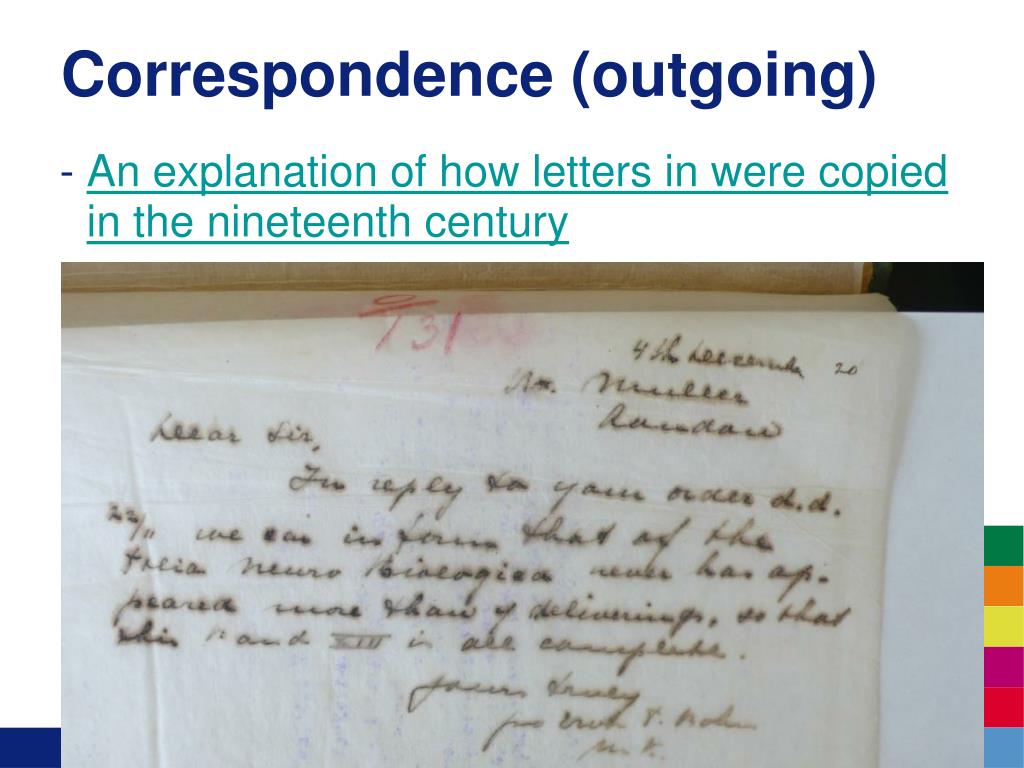 Correspondence (outgoing)
- An explanation of how letters in were copied
in the nineteenth century
731
4th December 20
Mr. Muller
Dear Sir,
In reply to your order d.d.
22/11 we can inform that of the
Folia Neuro Biologica never has ap-
peared more than 4 deliverings, so that
this and XIII is all complete.
Yours truly
pro Erven F. Bohn